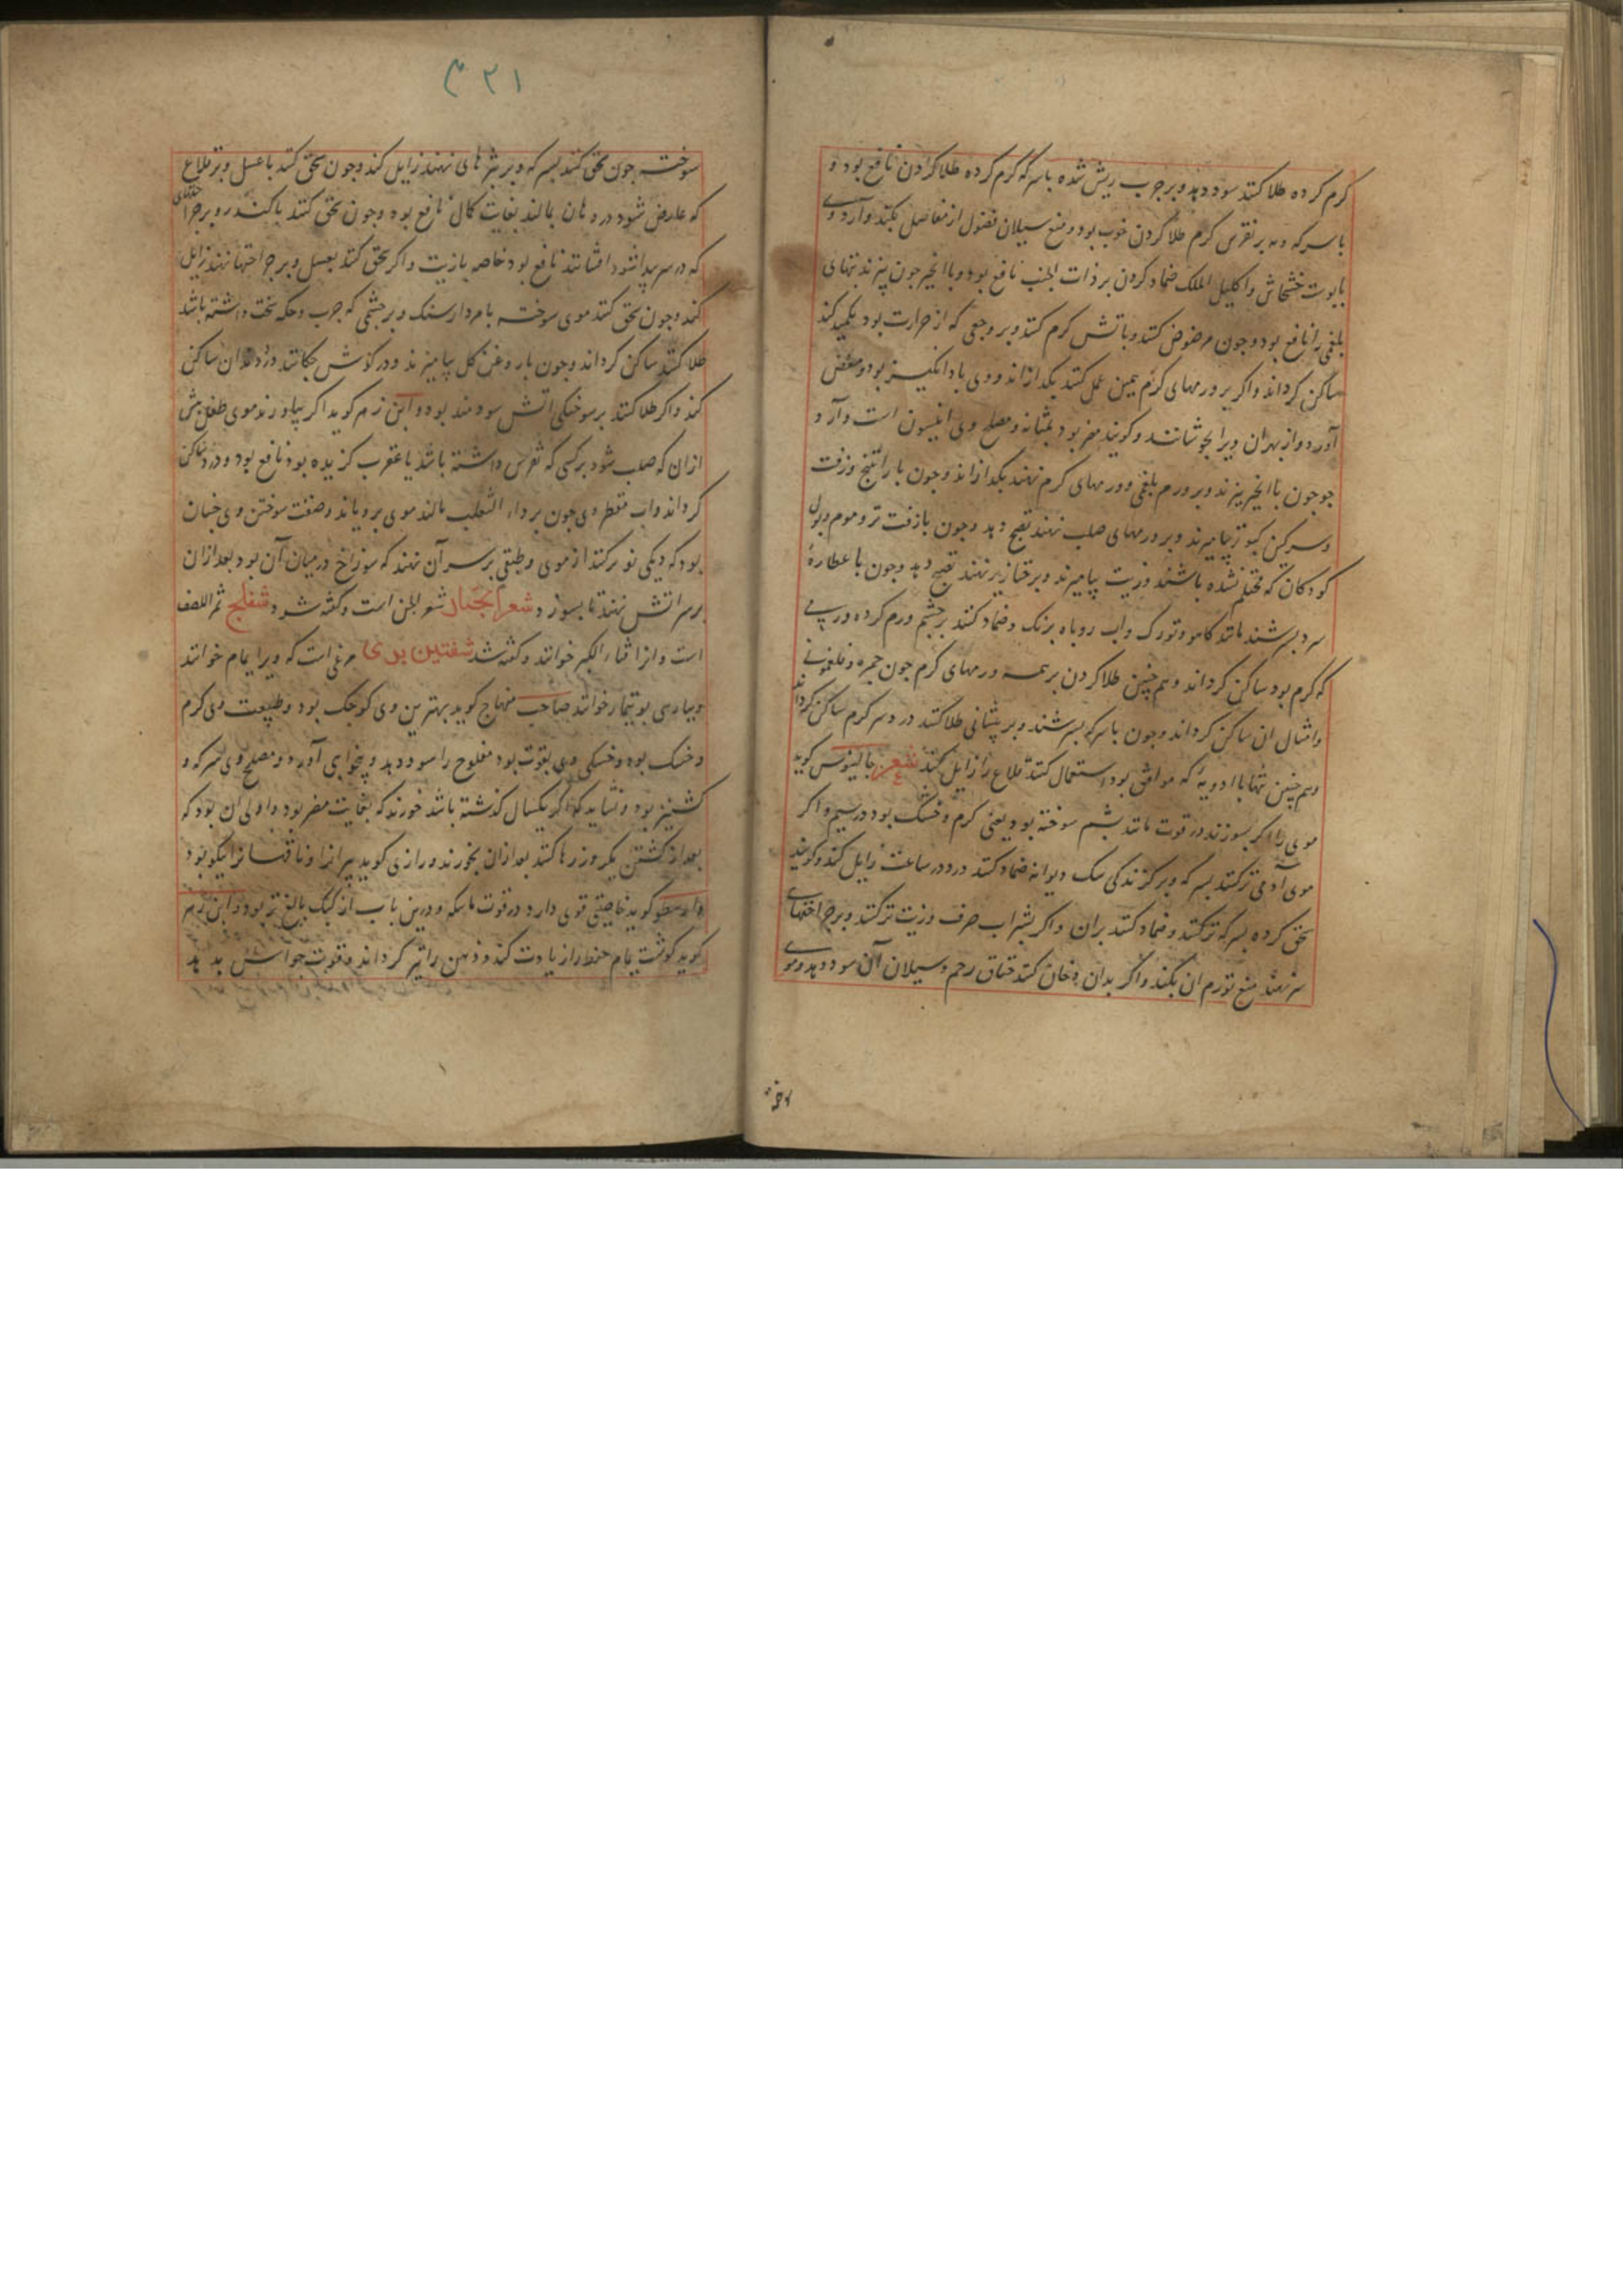 کرم کرده طلا کنند سود دهد و بر جرب ریش شده با سرکه کرم کرده طلا کردن نافع بود و
با سرکه و مر بر نقرس کرم طلا کردن خوب بود و منع سیلان فضول از مفاصل بکند و آرد وی
با پوست خشخاش و اکلیل الملک ضماد کردن بر ذات الجنب نافع بود و با انجیر چون پزند تبهای
بلغمی را نافع بود و چون مرضوض کنند و باتش کرم کنند و بر وجعی که از حرارت بود تکمید کنند
ساکن کرداند و اگر بر ورمهای کرم همین عمل کنند بکدازاند و وی باد انکیز بود و مغص
آورد و از بهر آن ویرا بجوشانند و کویند مضر بود بمثانه و مصلح وی انیسون است و آرد
جو چون با انجیر پزند و بر ورم بلغمی و ورمهای کرم نهند بکدازاند و چون با راتینج و زفت
و سرکین کبوتر بیامیزند و بر ورمهای صلب نهند نضج دهد و چون با زفت تر و موم و بول
کودکان که محتلم نشده باشند و زیت بیامیزند و بر خنازیر نهند نضج دهد و چون با عطارهٔ
سرد بسرشند مانند کاهو و تورک و آب روباه بزنک و ضماد کنند بر چشم ورم کرده در پی
که کرم بود ساکن کرداند و همچنین طلا کردن بر همه ورمهای کرم چون حمره و فلغمونی
و امثال ان ساکن کرداند و چون با سرکه بسرشند و بر پیشانی طلا کنند درد سر کرم ساکن کرداند
و همچنین تنها با ادویهٔ که موافق بود استعمال کنند قلاع را زایل کند شعر جالینوس کوید
موی را اکر بسوزند در قوت مانند پشم سوخته بود یعنی کرم و خشک بود در سیم و اکر
موی آدمی تر کنند بسرکه و بر کزندکی سک دیوانه ضماد کنند درد در ساعت زایل کند و کویند
سحق کرده بسرکه تر کنند و ضماد کنند بران و اکر بشراب صرف و زیت تر کنند و بر جراحتهای
سر نهند منع تورم ان بکند و اکر بدان دخان کنند خناق رحم و سیلان آن سود دهد و موی
سوخته
۳۲۱
سوخته چون سحق کنند بسرکه و بر بثرهای نهند زایل کند و چون سحق کنند با عسل و بر قلاع
که عارض شود در دهان بمالند بغایت کمال نافع بود و چون سحق کنند با کندر و بر جراحتهای
که در سر پیدا شود افشانند نافع بود خاصه با زیت و اکر سحق کنند بعسل و بر جراحتها نهند زایل
کند و چون سحق کنند موی سوخته با مردارسنک و بر چشمی که جرب و حکه سخت داشته باشد
طلا کنند ساکن کرداند و چون با روغن کل بیامیزند و در کوش چکانند درد دندان ساکن
کند و اکر طلا کنند بر سوختکی اتش سودمند بود و ابن زهر کوید اکر بیاورند موی طفل پیش
ازان که صلب شود بر کسی که نقرس داشته باشد یا عقرب کزیده بود نافع بود و درد ساکن
کرداند و آب مقطر وی چون بر داء الثعلب مالند موی برویاند و صفت سوختن وی چنان
بود که دیکی نو پر کنند از موی و طبقی بر سر آن نهند که سوراخ در میان آن بود بعد ازان
بر سر اتش نهند تا بسوزد شعر الجبال شعر الجن است و کفته شود شفلج ثمر اللصف
است و انرا قثاء الکبر خوانند و کفته شد شفنین بری مرغی است که ویرا یمام خوانند
و بپارسی بوتیمار خوانند صاحب منهاج کوید بهترین وی کوچک بود و طبیعت وی کرم
و خشک بود و خشکی وی بقوت بود مفلوج را سود دهد و بیخوابی آورد و مصلح وی سرکه و
کشنیز بود و نشاید که اکر یکسال کذشته باشد خورند که بغایت مضر بود و اولی ان بود که
بعد از کشتن یکروز رها کنند بعد ازان بخورند و رازی کوید پیرانرا و ناقهانرا نیکو بود
و ارسطو کوید خاصیتی قوی دارد در قوت ماسکه و درین باب از کبک بالغ تر بود و ابن زهر
کوید کوشت یمام حفظ را زیادت کند و ذهن را تیز کرداند و قوت حواس بدهد